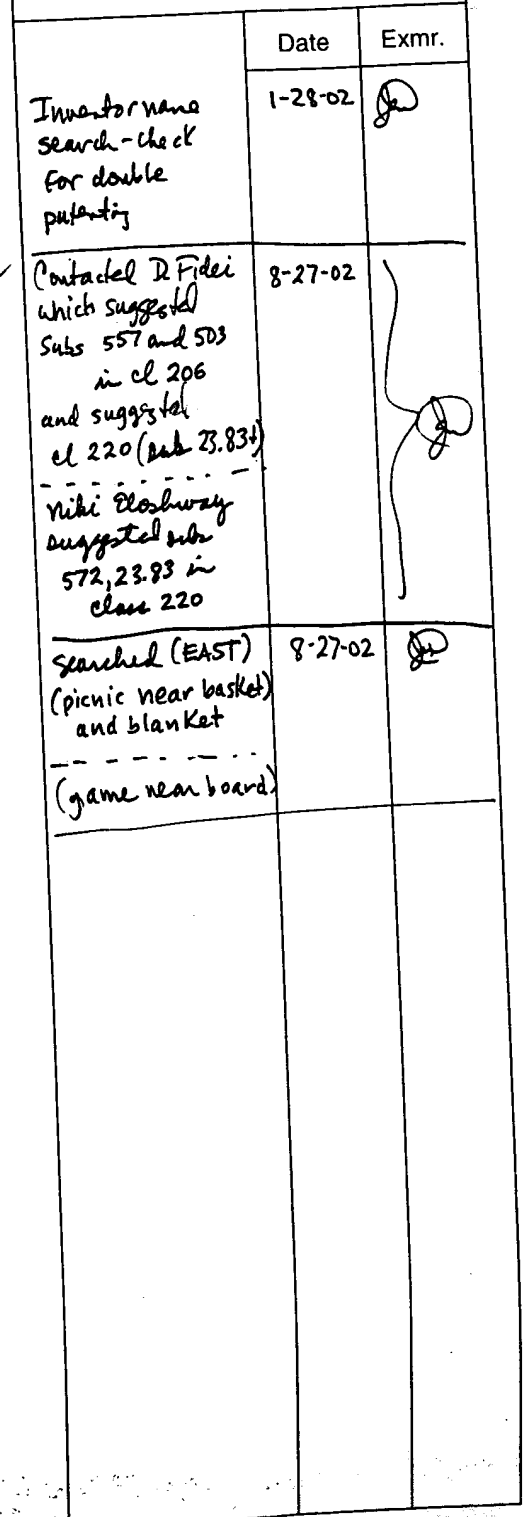 Date Exmr.
Inventor name 1-28-02
search-check
for double
patenting
Contacted D. Fidei 8-27-02
which suggested
Subs 557 and 503
in cl 206
and suggested
cl 220 (sub 23.83+)
Niki Eloshway
suggested subs
572, 23.83 in
class 220
searched (EAST) 8-27-02
(picnic near basket)
and blanket
(game near board)